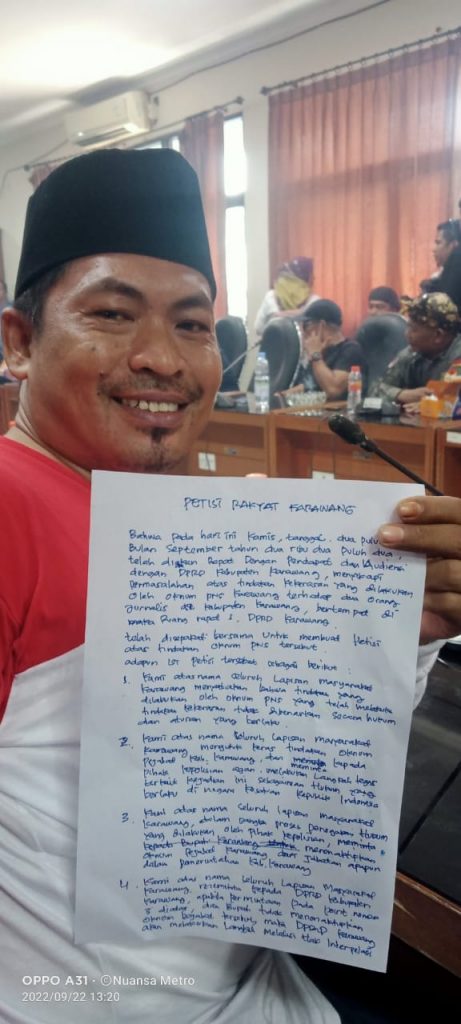 PETISI RAKYAT KARAWANG
Bahwa pada hari ini Kamis, tanggal dua puluh
Bulan September tahun dua ribu dua puluh dua,
telah di Rapat Dengan Pendapat dan Audiensi
dengan DPRD Kabupaten Karawang, menyikapi
Permasalahan atas tindakan kekerasan yang dilakukan
oleh oknum PNS Karawang terhadap dua orang
Jurnalis Kabupaten Karawang, bertempat di
Ruang rapat I. DPRD Karawang.
telah disepakati bersama untuk membuat Petisi
atas tindakan oknum PNS tersebut.
adapun isi Petisi tersebut sebagai berikut :
1. Kami atas nama seluruh Lapisan masyarakat
Karawang menyatakan bahwa tindakan yang
dilakukan oleh oknum PNS yang telah melakukan
tindakan kekerasan tidak dibenarkan secara hukum
dan aturan yang berlaku.
2. Kami atas nama seluruh Lapisan masyarakat
Karawang mengutuk keras tindakan oknum
Pejabat Kab. Karawang, dan meminta kepada
Pihak kepolisian agar melakukan Langkah tegas
terkait kejadian ini sebagaimana Hukum yang
berlaku di Negara Kesatuan Republik Indonesia
3. Kami atas nama seluruh Lapisan masyarakat
Karawang, dalam proses penegakan Hukum
yang dilakukan oleh pihak kepolisian, meminta
kepada Bupati Karawang menonaktifkan
oknum Pejabat Karawang dari Jabatan apapun
dalam Pemerintahan Kab. Karawang
4. Kami atas nama seluruh Lapisan Masyarakat
Karawang, meminta kepada DPRD Kabupaten
Karawang, apabila permintaan pada point nomor
3 diatas, jika Bupati tidak menonaktifkan
oknum pejabat tersebut, maka DPRD Karawang
akan melakukan Langkah melalui Hak Interpelasi
OPPO A31 · ©Nuansa Metro
2022/09/22 13:20